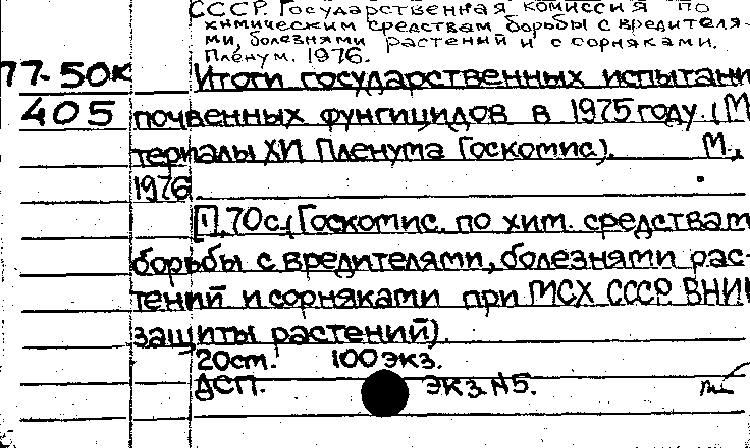 СССР. Государственная комиссия по
химическим средствам борьбы с вредителя-
ми, болезнями растений и с сорняками.
Пленум. 1976.
77-50к Итоги государственных испытани
405 почвенных фунгицидов в 1975 году. (М
териалы XII Пленума Госкомис). М.,
1976.
[1], 70с. (Госкомис. по хим. средствам
борьбы с вредителями, болезнями рас-
тений и сорняками при МСХ СССР. ВНИИ
защиты растений).
20см. 100 экз.
ДСП. Экз. №5.